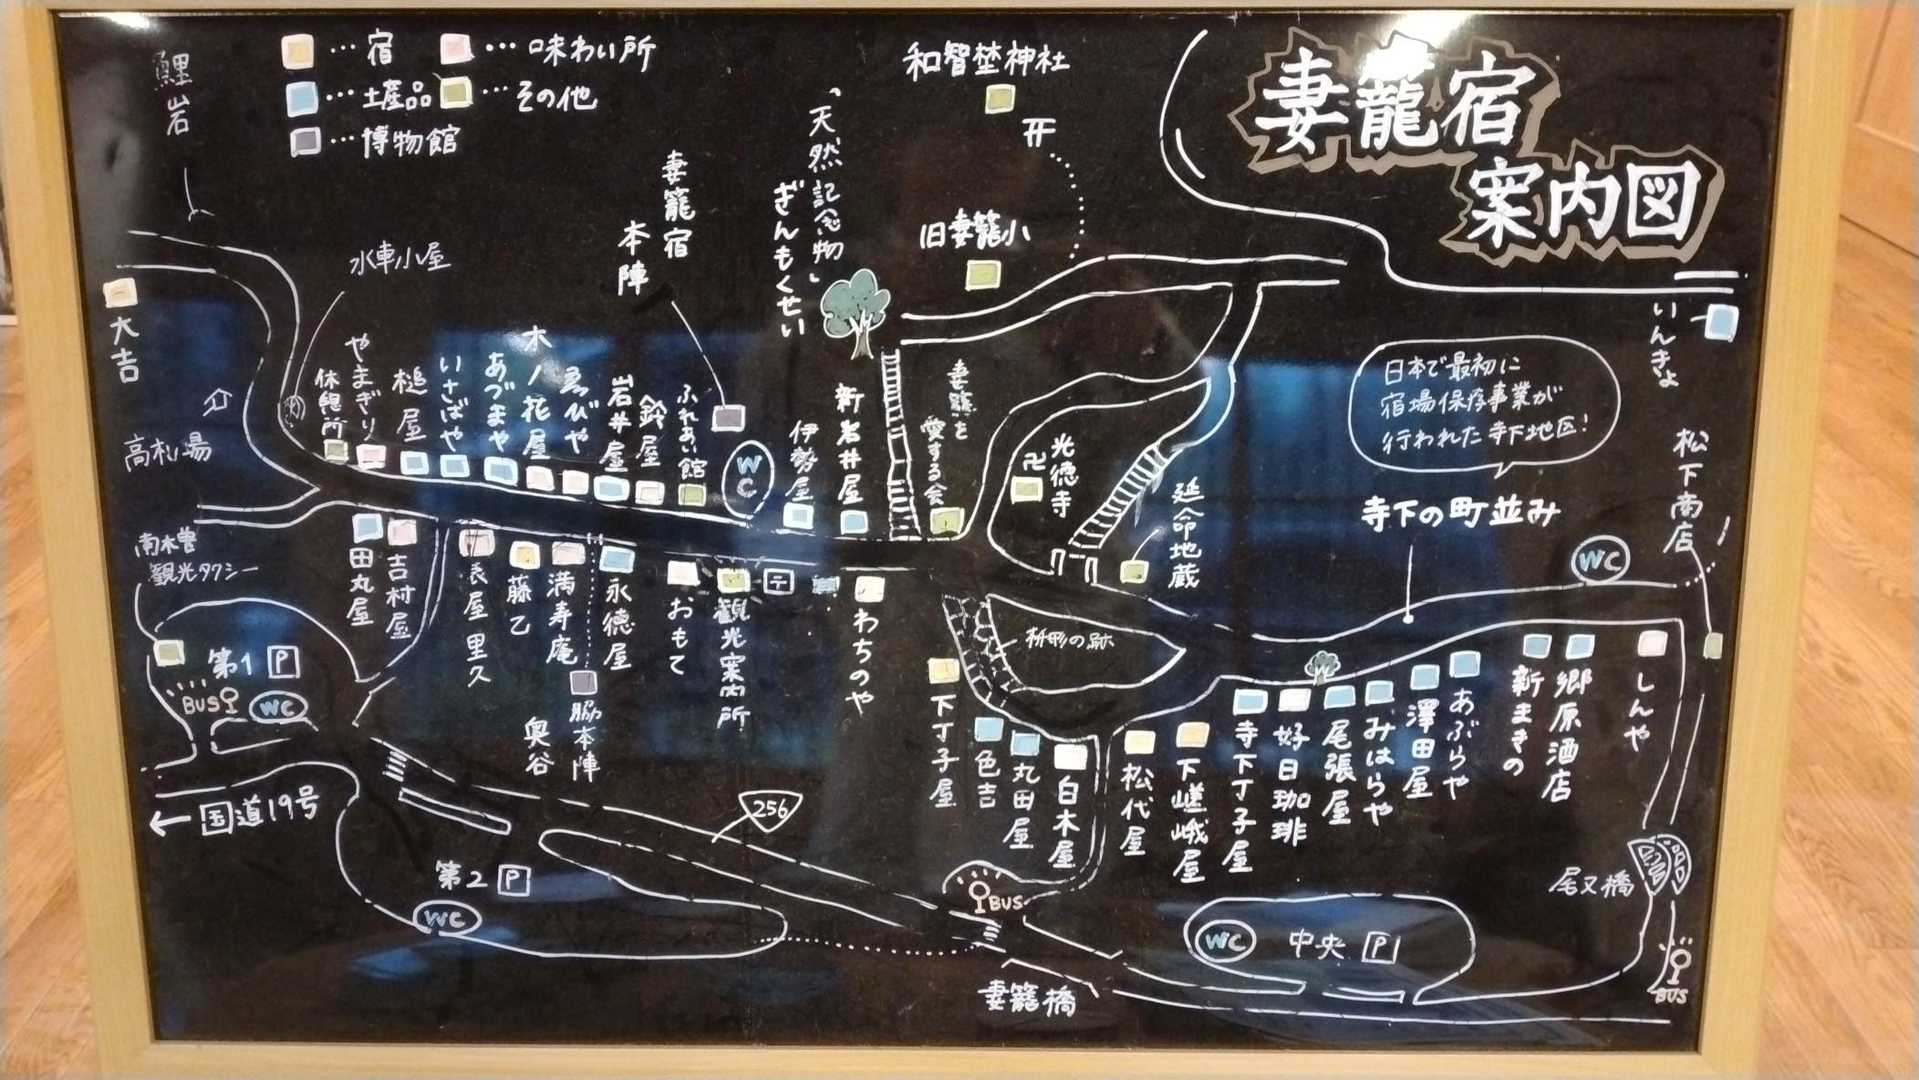 妻籠宿
案内図
…宿
…味わい所
…土産品
…その他
…博物館
鯉岩
水車小屋
大吉
高札場
南木曽
観光タクシー
第1 P
BUS
WC
← 国道19号
休憩所
やまぎり
槌屋
いさばや
あづまや
木ノ花屋
ゑびや
岩井屋
鈴屋
ふれあい館
妻籠宿
本陣
WC
伊勢屋
新岩井屋
「天然記念物」
ぎんもくせい
和智埜神社
旧妻籠小
妻籠を
愛する会
光徳寺
卍
延命地蔵
田丸屋
吉村屋
藤乙
満寿庵
脇本陣
奥谷
永徳屋
おもて
観光案内所
〒
わちのや
枡形の跡
下丁子屋
色吉
丸田屋
白木屋
松代屋
下嵯峨屋
寺下丁子屋
好日珈琲
尾張屋
みはらや
澤田屋
あぶらや
新まきの
郷原酒店
しんや
松下商店
いんきょ
日本で最初に
宿場保存事業が
行われた寺下地区!
寺下の町並み
WC
256
第2 P
WC
BUS
妻籠橋
WC
中央 P
尾又橋
BUS